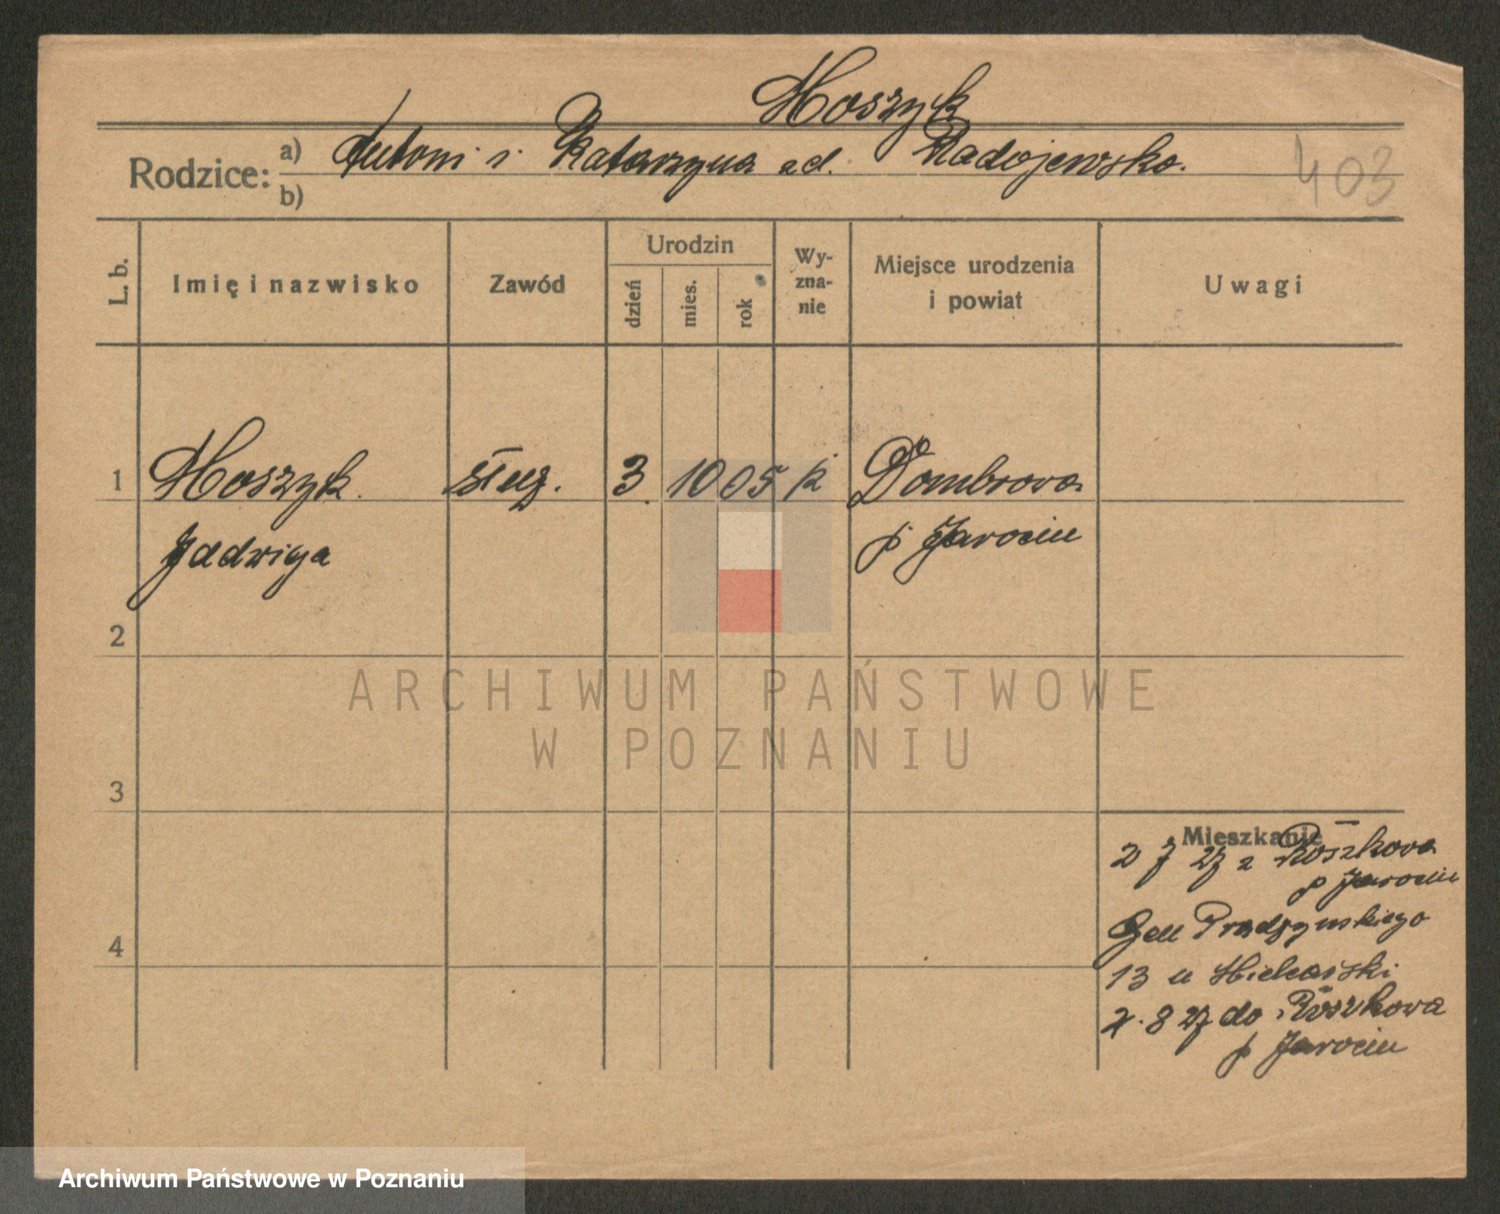 Moszyk
Rodzice: a) Antoni i Katarzyna zd. Radojewska.
b)
403
L. b. Imię i nazwisko Zawód Urodzin dzień mies. rok Wyznanie Miejsce urodzenia i powiat Uwagi
1 Moszyk służ. 3. 10 05 k Dombrova
Jadwiga p Jarocin
2
3
4
Mieszkanie
2 7 27 z Roszkova
p Jarocin
Gen Prądzyńskiego
13 u
2. 8 27 do Roszkova
p Jarocin
ARCHIWUM PAŃSTWOWE
W POZNANIU
Archiwum Państwowe w Poznaniu